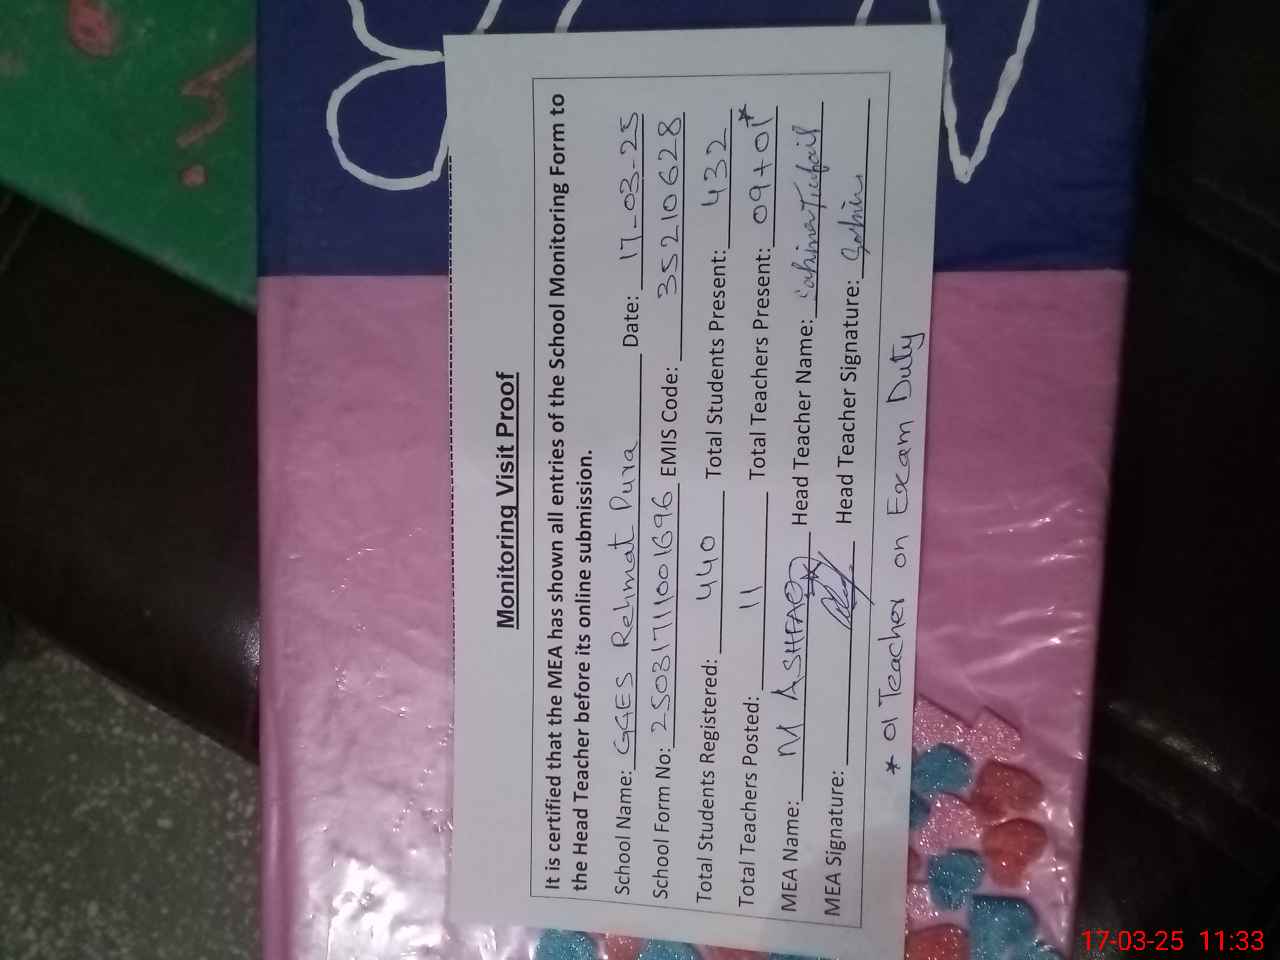 Monitoring Visit Proof
It is certified that the MEA has shown all entries of the School Monitoring Form to
the Head Teacher before its online submission.
School Name: GGES Rehmat Pura Date: 17-03-25
School Form No: 2503171100 1696 EMIS Code: 35210628
Total Students Registered: 440 Total Students Present: 432
Total Teachers Posted: 11 Total Teachers Present: 09+01*
MEA Name: M ASHFAQ Head Teacher Name: Tufail
MEA Signature: Head Teacher Signature:
* 01 Teacher on Exam Duty
17-03-25 11:33